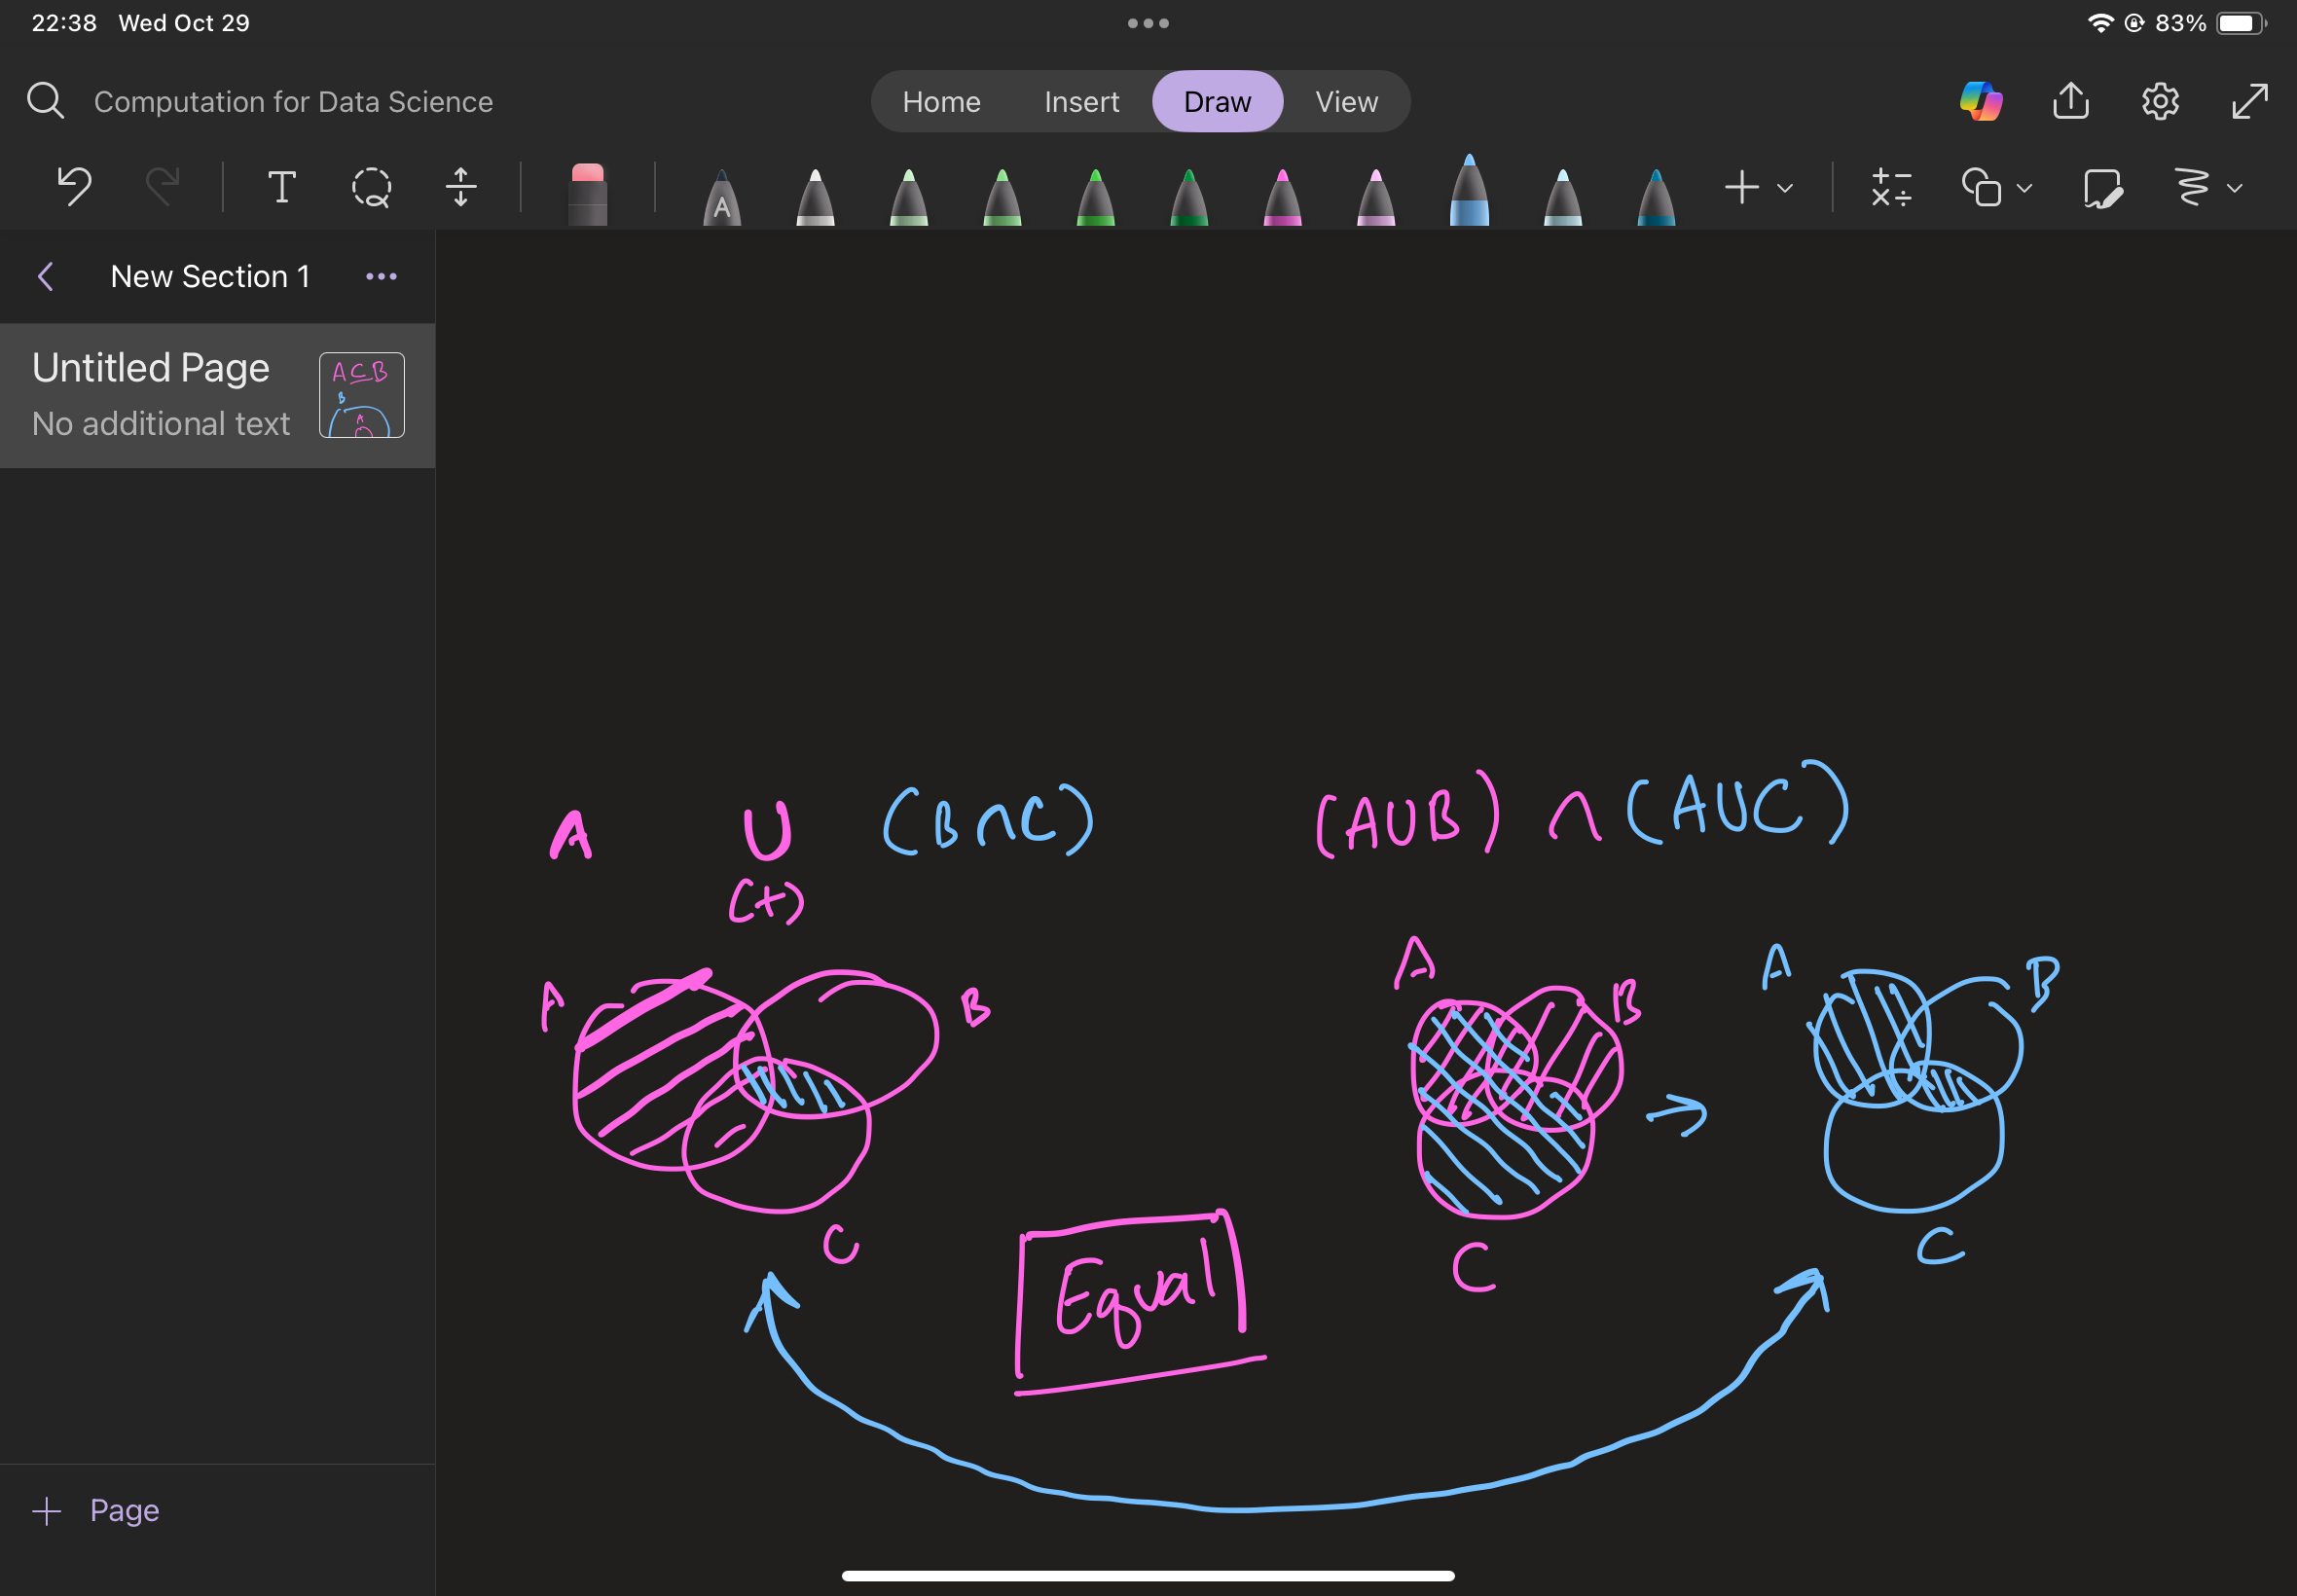 22:38 Wed Oct 29
83%
Computation for Data Science
Home Insert Draw View
T A
New Section 1
Untitled Page
No additional text
A ⊆ B
B
A
A ∪ (B∩C)
(+)
(A∪B) ∩ (A∪C)
A B
C
A B
C
A B
C
Equal
Page